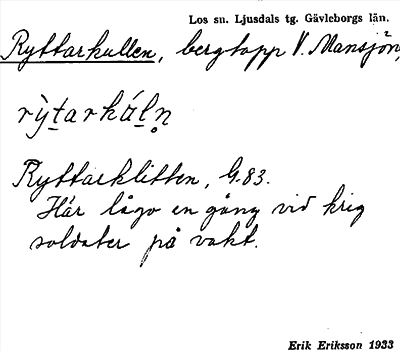 Los sn. Ljusdals tg. Gävleborgs län.
Ryttarkullen, bergtopp V. Mansjön,
rỳtarkáln̥
Ryttarklitten, G.83.
Här lågo en gång vid krig
soldater på vakt.
Erik Eriksson 1933